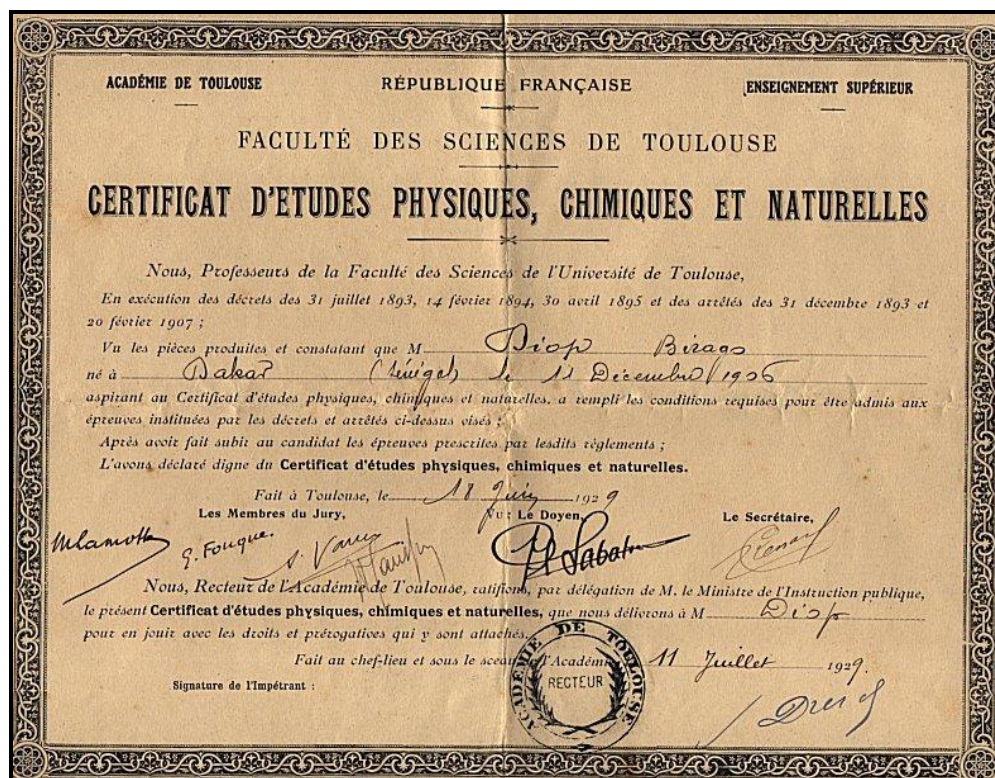 ACADÉMIE DE TOULOUSE
RÉPUBLIQUE FRANÇAISE
ENSEIGNEMENT SUPÉRIEUR
FACULTÉ DES SCIENCES DE TOULOUSE
CERTIFICAT D'ETUDES PHYSIQUES, CHIMIQUES ET NATURELLES
Nous, Professeurs de la Faculté des Sciences de l'Université de Toulouse,
En exécution des décrets des 31 juillet 1893, 14 février 1894, 30 avril 1895 et des arrêtés des 31 décembre 1893 et
20 février 1907 ;
Vu les pièces produites et constatant que M Diop Birago
né à Dakar (Sénégal) le 11 Décembre 1906
aspirant au Certificat d'études physiques, chimiques et naturelles, a rempli les conditions requises pour être admis aux
épreuves instituées par les décrets et arrêtés ci-dessus visés ;
Après avoir fait subir au candidat les épreuves prescrites par lesdits règlements ;
L'avons déclaré digne du Certificat d'études physiques, chimiques et naturelles.
Fait à Toulouse, le 18 Juin 1929
Les Membres du Jury,
Vu : Le Doyen,
Le Secrétaire,
G. Fouque.
P Sabatier
Nous, Recteur de l'Académie de Toulouse, ratifions, par délégation de M. le Ministre de l'Instruction publique,
le présent Certificat d'études physiques, chimiques et naturelles, que nous délivrons à M Diop
pour en jouir avec les droits et prérogatives qui y sont attachés.
Fait au chef-lieu et sous le sceau de l'Académie 11 Juillet 1929.
Signature de l'Impétrant :
ACADÉMIE DE TOULOUSE
RECTEUR